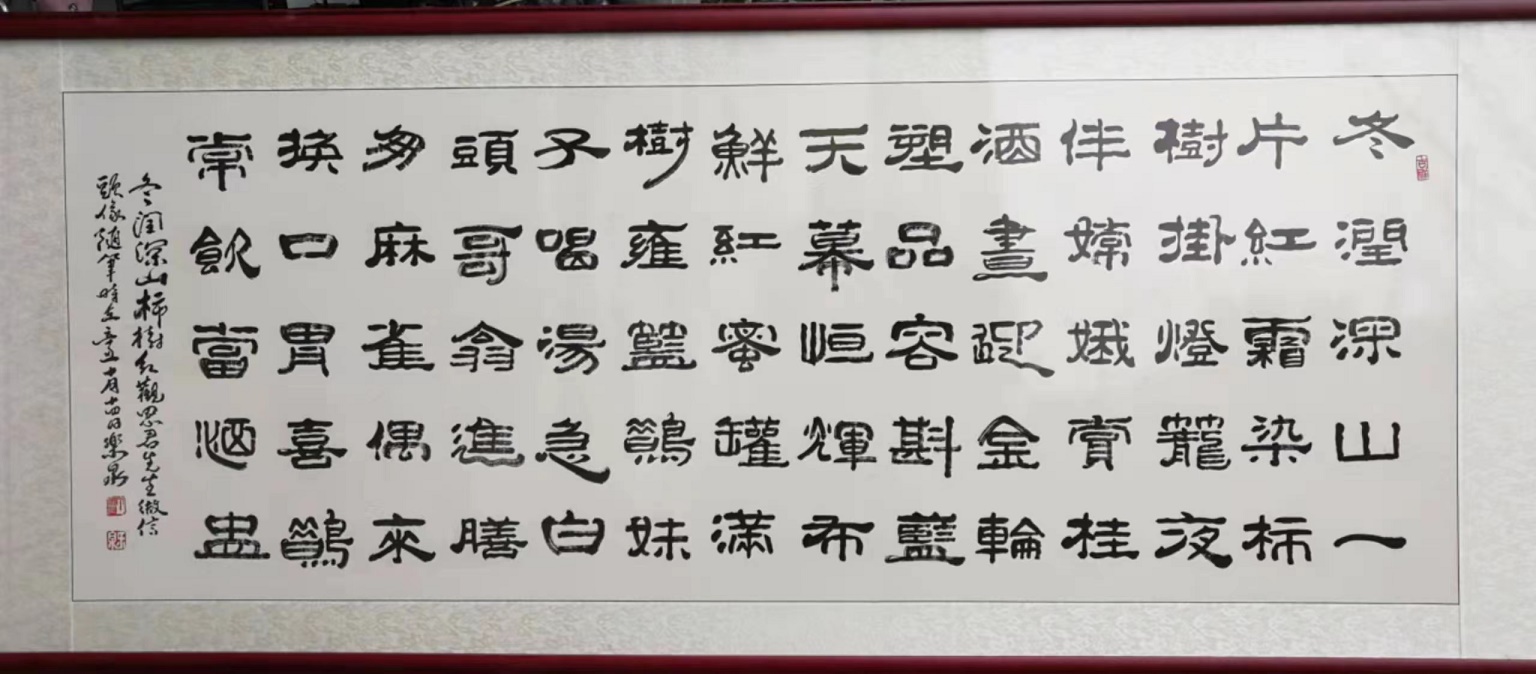 冬潤深山一
片紅霜染柿
樹掛燈蘢夜
伴嫦娥賞桂
酒晝迎金輪
塑品容斟藍
天幕恒輝布
鮮紅蜜罐滿
樹雍籃鶯妹
子喝湯急白
頭哥翁進膳
匆麻雀偶來
換口胃喜鶯
常飲當酒盅
冬潤深山柿樹紅觀思君先生微信
頭像隨筆時在辛丑十月十四日樂泉